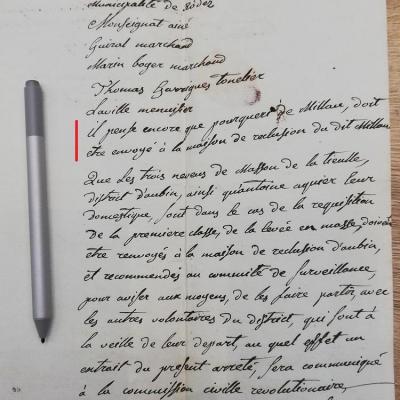 municipalité de Rodez
Monseignat ainé
Guiral marchand
Marin boyer marchand
Thomas Garrigues tonelier
Laville menuisier
il pense encore que pourquery de Millau, doit
etre envoyé à la maison de reclusion du dit Millau
Que les trois neveus de Masson de la treulle,
district d'aubin, ainsi qu'antoine aquier leur
domestique, sont dans le cas de la requisition
de la premiere classe, de la levée en masse, doivent
etre renvoyés à la maison de reclusion d'aubin,
et recommendés au commité de surveillance,
pour aviser aux moyens, de les faire partir, avec
les autres volontaires du district, qui sont à
la veille de leur depart, au quel effet un
extrait du present arreté, sera communiqué
à la commission civille revolutionaire,